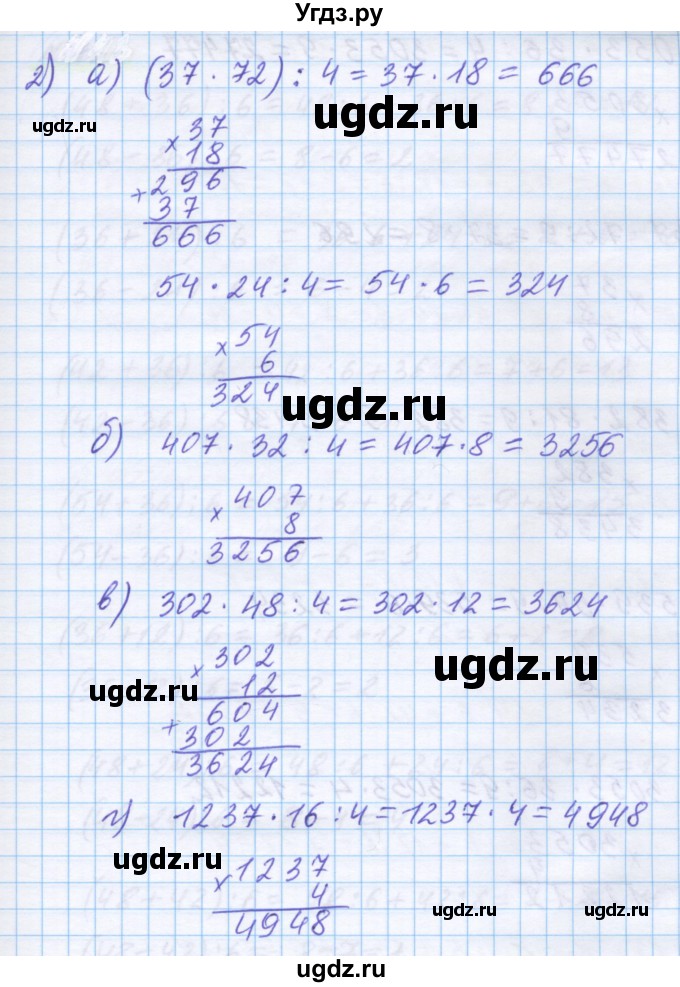 Угдз.ру
2) а) (37 · 72) : 4 = 37 · 18 = 666
ugdz.ru
ugdz.ru
× 37
18
+ 296
37
666
54 · 24 : 4 = 54 · 6 = 324
× 54
6
324
ugdz.ru
б) 407 · 32 : 4 = 407 · 8 = 3256
× 407
8
3256
в) 302 · 48 : 4 = 302 · 12 = 3624
× 302
ugdz.ru
ugdz.ru
12
604
+ 302
3624
г) 1237 · 16 : 4 = 1237 · 4 = 4948
ugdz.ru
× 1237
4
4948
ugdz.ru
ugdz.ru
ugdz.ru